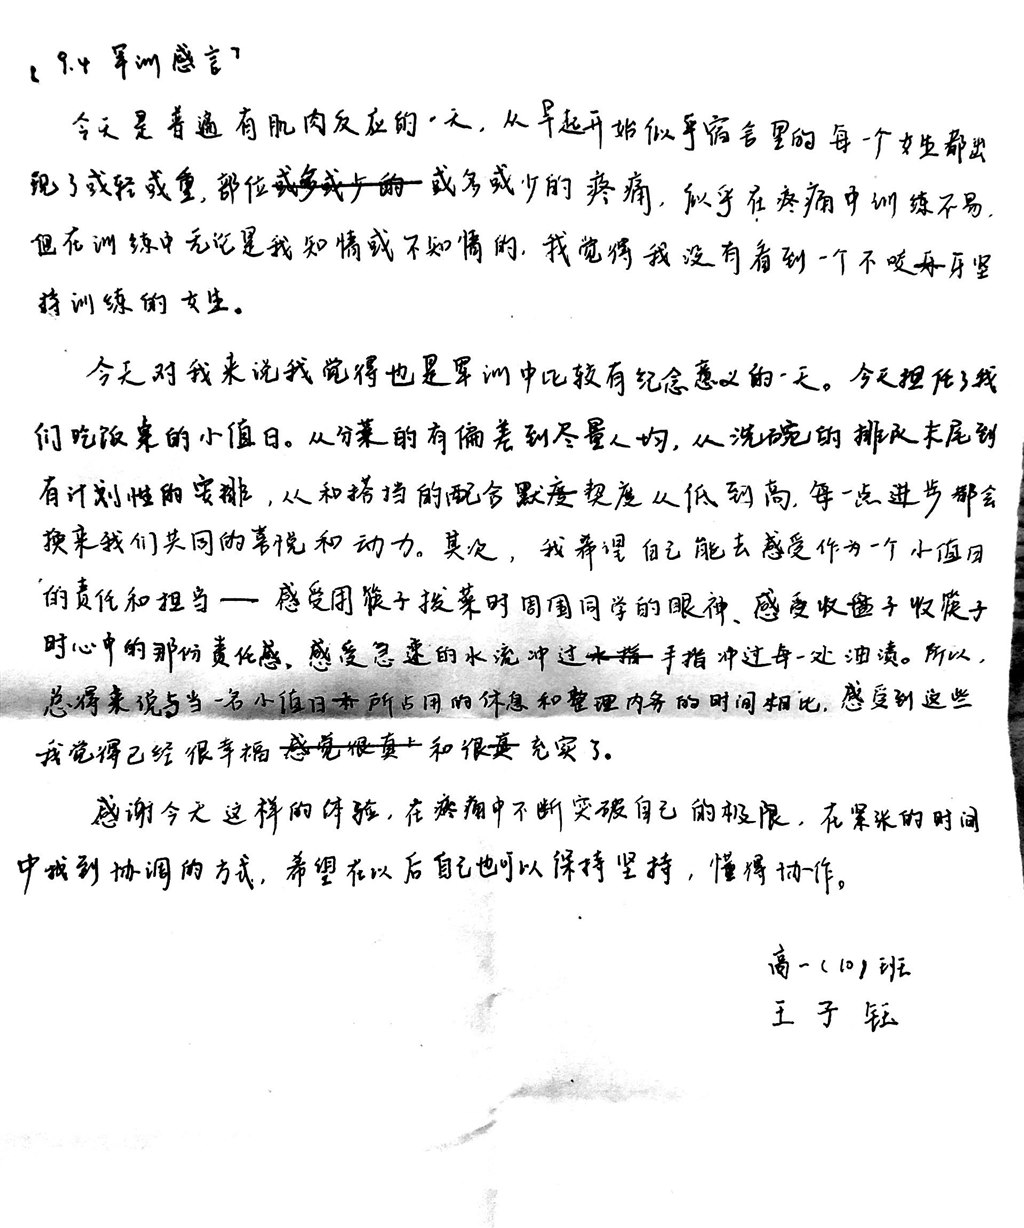 「9.4 军训感言」
今天是普遍有肌肉反应的一天，从早起开始似乎宿舍里的每一个女生都出
现了或轻或重，部位或多或少的或多或少的疼痛，似乎在疼痛中训练不易，
但在训练中无论是我知情或不知情的，我觉得我没有看到一个不咬牙坚
持训练的女生。
今天对我来说我觉得也是军训中比较有纪念意义的一天。今天担任了我
们吃饭桌的小值日。从分菜的有偏差到尽量人均，从洗碗的排队末尾到
有计划性的安排，从和搭挡的配合默度契度从低到高，每一点进步都会
换来我们共同的喜悦和动力。其次，我希望自己能去感受作为一个小值日
的责任和担当——感受用筷子拨菜时周围同学的眼神、感受收盘子收筷子
时心中的那份责任感、感受急速的水流冲过水指手指冲过每一处油渍。所以，
总得来说与当一名小值日所占用的休息和整理内务的时间相比，感受到这些
我觉得已经很幸福感觉很真和很真充实了。
感谢今天这样的体验，在疼痛中不断突破自己的极限，在紧张的时间
中找到协调的方式，希望在以后自己也可以保持坚持，懂得协作。
高一（10）班
王子钰